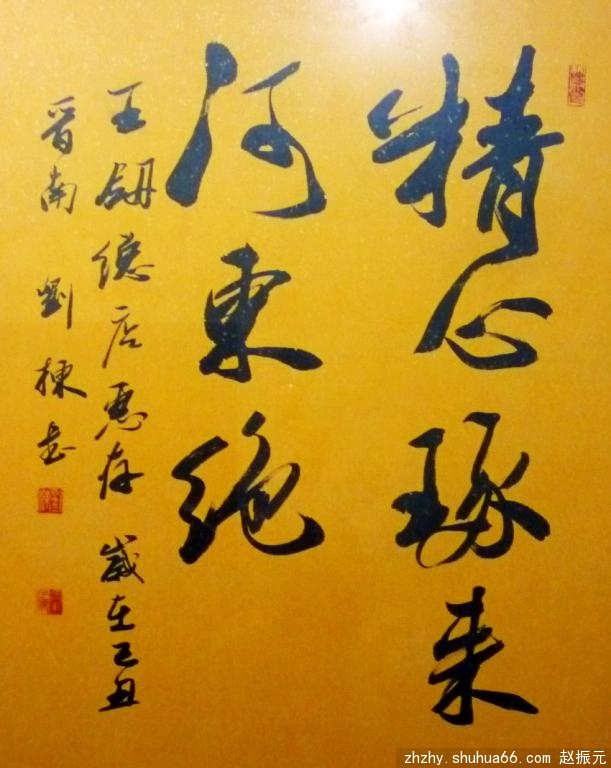 精心琢来
河東絶
王總店惠存 歲在己丑
晋南 劉棟书
zhzhy.shuhua66.com 赵振元